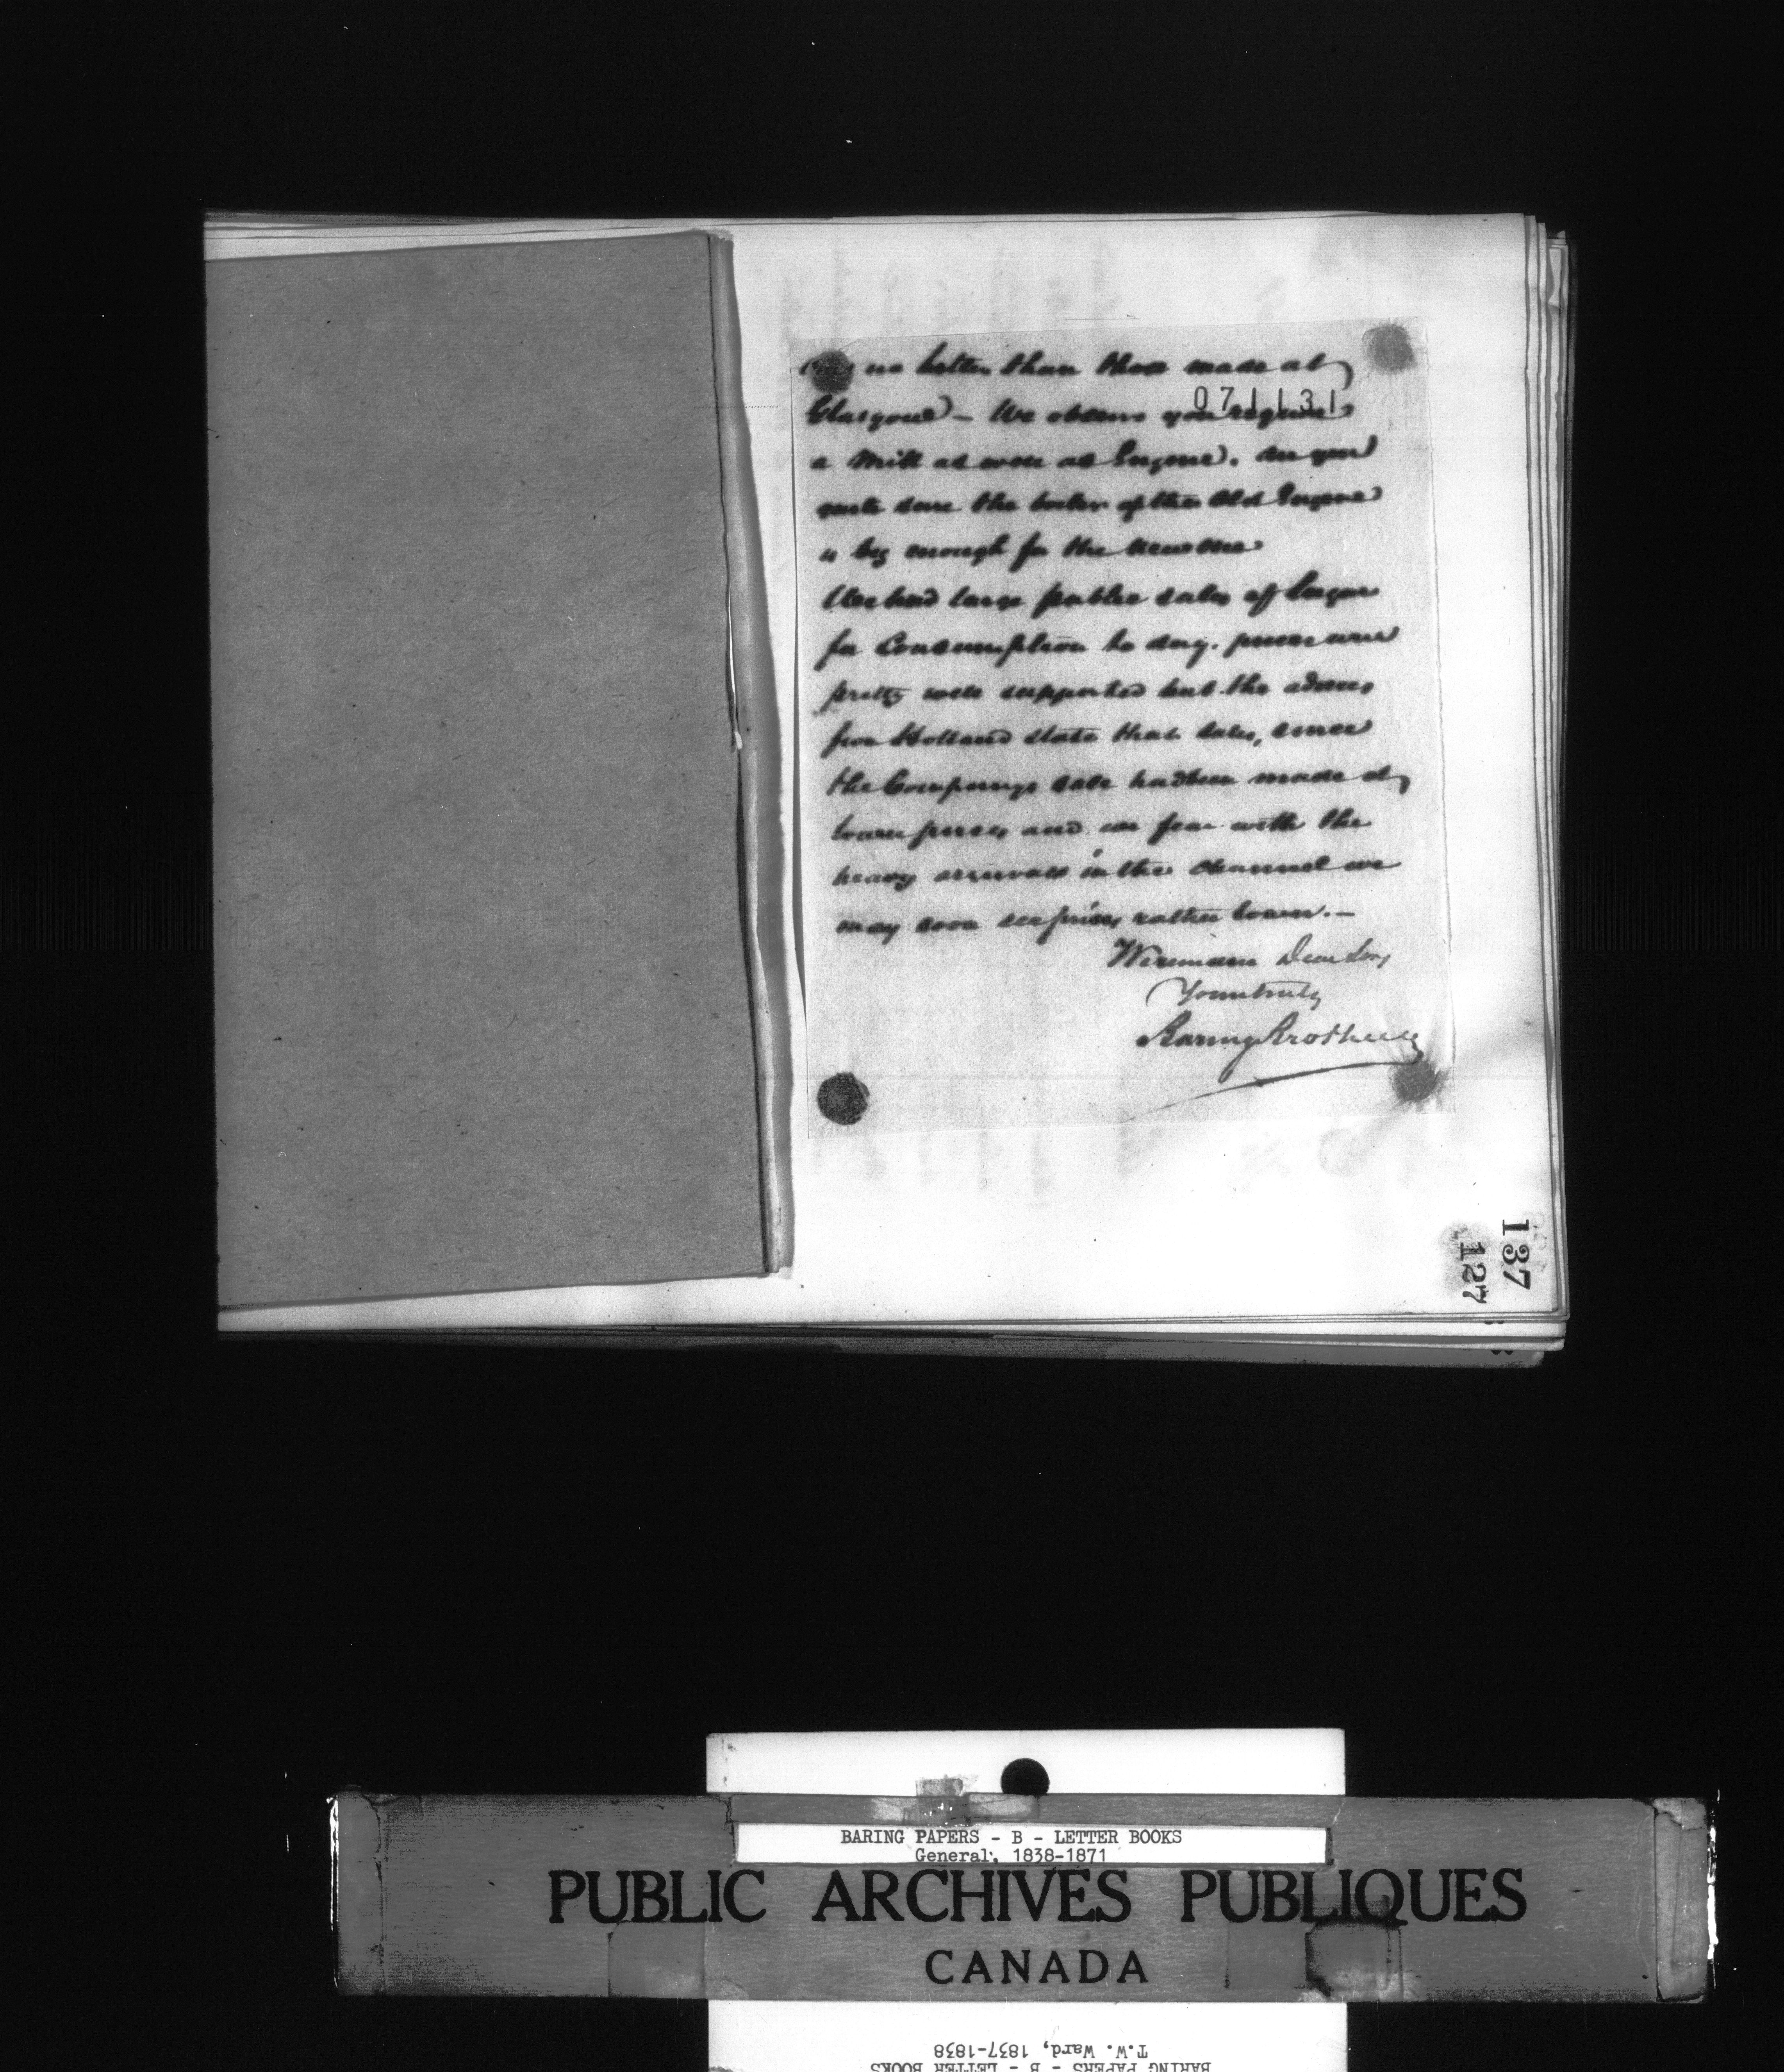 no better than those made at
Glasgow) - We observe you require
071131
a Mill as well as Engine. Are you
quite sure the boiler of the Old Engine
is big enough for the new one
We had large public sales of Sugar
for Consumption to day. prices were
pretty well supported but the advices
from Holland state that sales, since
the Company's sale had been made at
lower prices and we fear with the
heavy arrivals in the channel we
may soon see prices rather lower. -
We remain Dear Sirs
Yours truly
Baring Brothers
137
127
BARING PAPERS - B - LETTER BOOKS
General, 1838-1871
PUBLIC ARCHIVES PUBLIQUES
CANADA
T.W. Ward, 1837-1838
BARING PAPERS - B - LETTER BOOKS